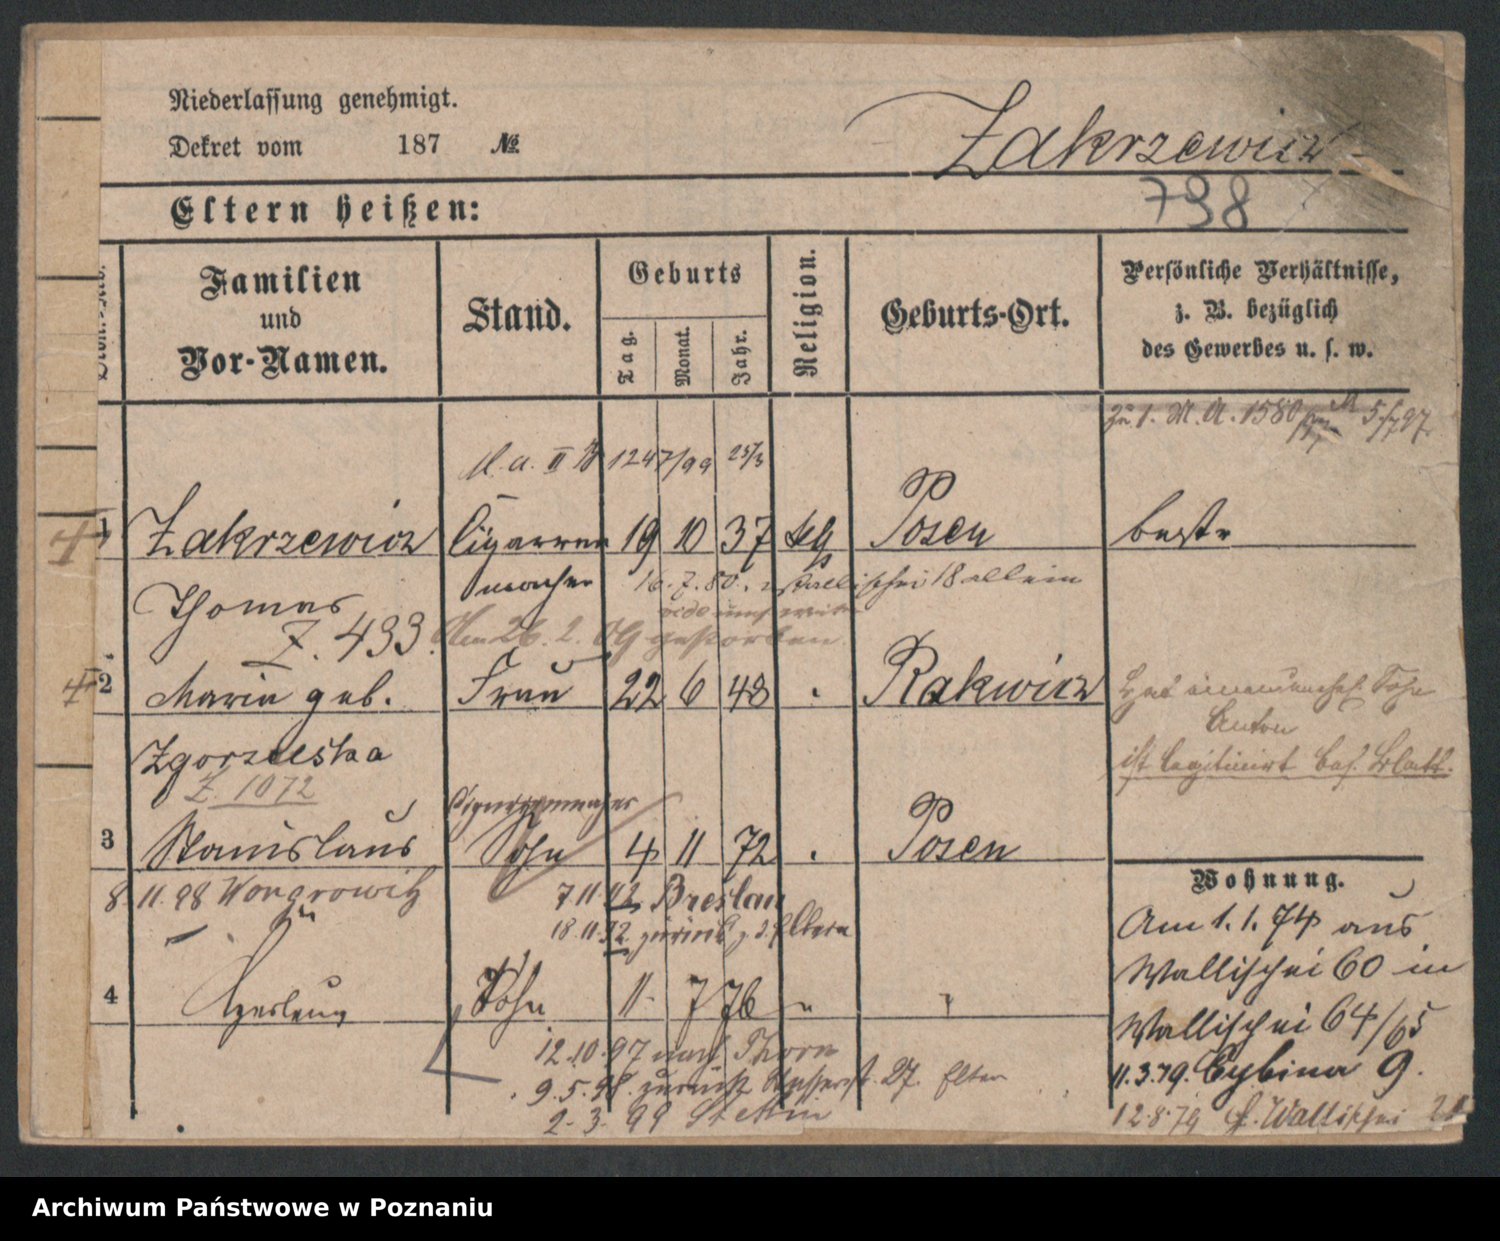 Niederlassung genehmigt.
Dekret vom 187 №
Zakrzewicz
798
Eltern heißen:
Familien und Vor-Namen.
Stand.
Geburts
Tag. Monat. Jahr.
Religion.
Geburts-Ort.
Persönliche Verhältnisse, z. B. bezüglich des Gewerbes u. s. w.
Zu 1. M. A. 1580 5/7 97
M. a. II B 1247/99 25/3
1 Zakrzewicz Cigarren 19 10 37 kth Posen
macher 16.7.80. Wallischei 18 allein
Thomas
Z. 433. 26. 2. 09 gestorben
2 Maria geb. Frau 22 6 48 Rakwicz
Anton
Zgorzelska
ist legitimirt bes. Blatt.
Z. 1072
Cigarrenmacher
3 Stanislaus Sohn 4 11 72 Posen
Wohnung.
8. 11. 98 Wongrowitz 7.11.02 Breslau
18.11.02 zurück z. d. Eltern
Am 1. 1. 74 aus
Wallischei 60 in
4 Sohn 11 7 76
Wallischei 64/65
12.10.97 nach Thorn
11.3.79. Cybina 9.
9.5.98. zurück 27. Eltern
2. 3. 99 Stettin
12.8.79 Wallischei
Archiwum Państwowe w Poznaniu